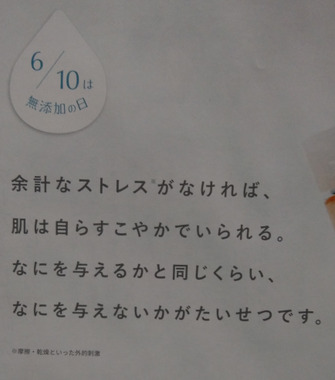 6/10は
無添加の日
余計なストレス※がなければ、
肌は自らすこやかでいられる。
なにを与えるかと同じくらい、
なにを与えないかがたいせつです。
※摩擦・乾燥といった外的刺激